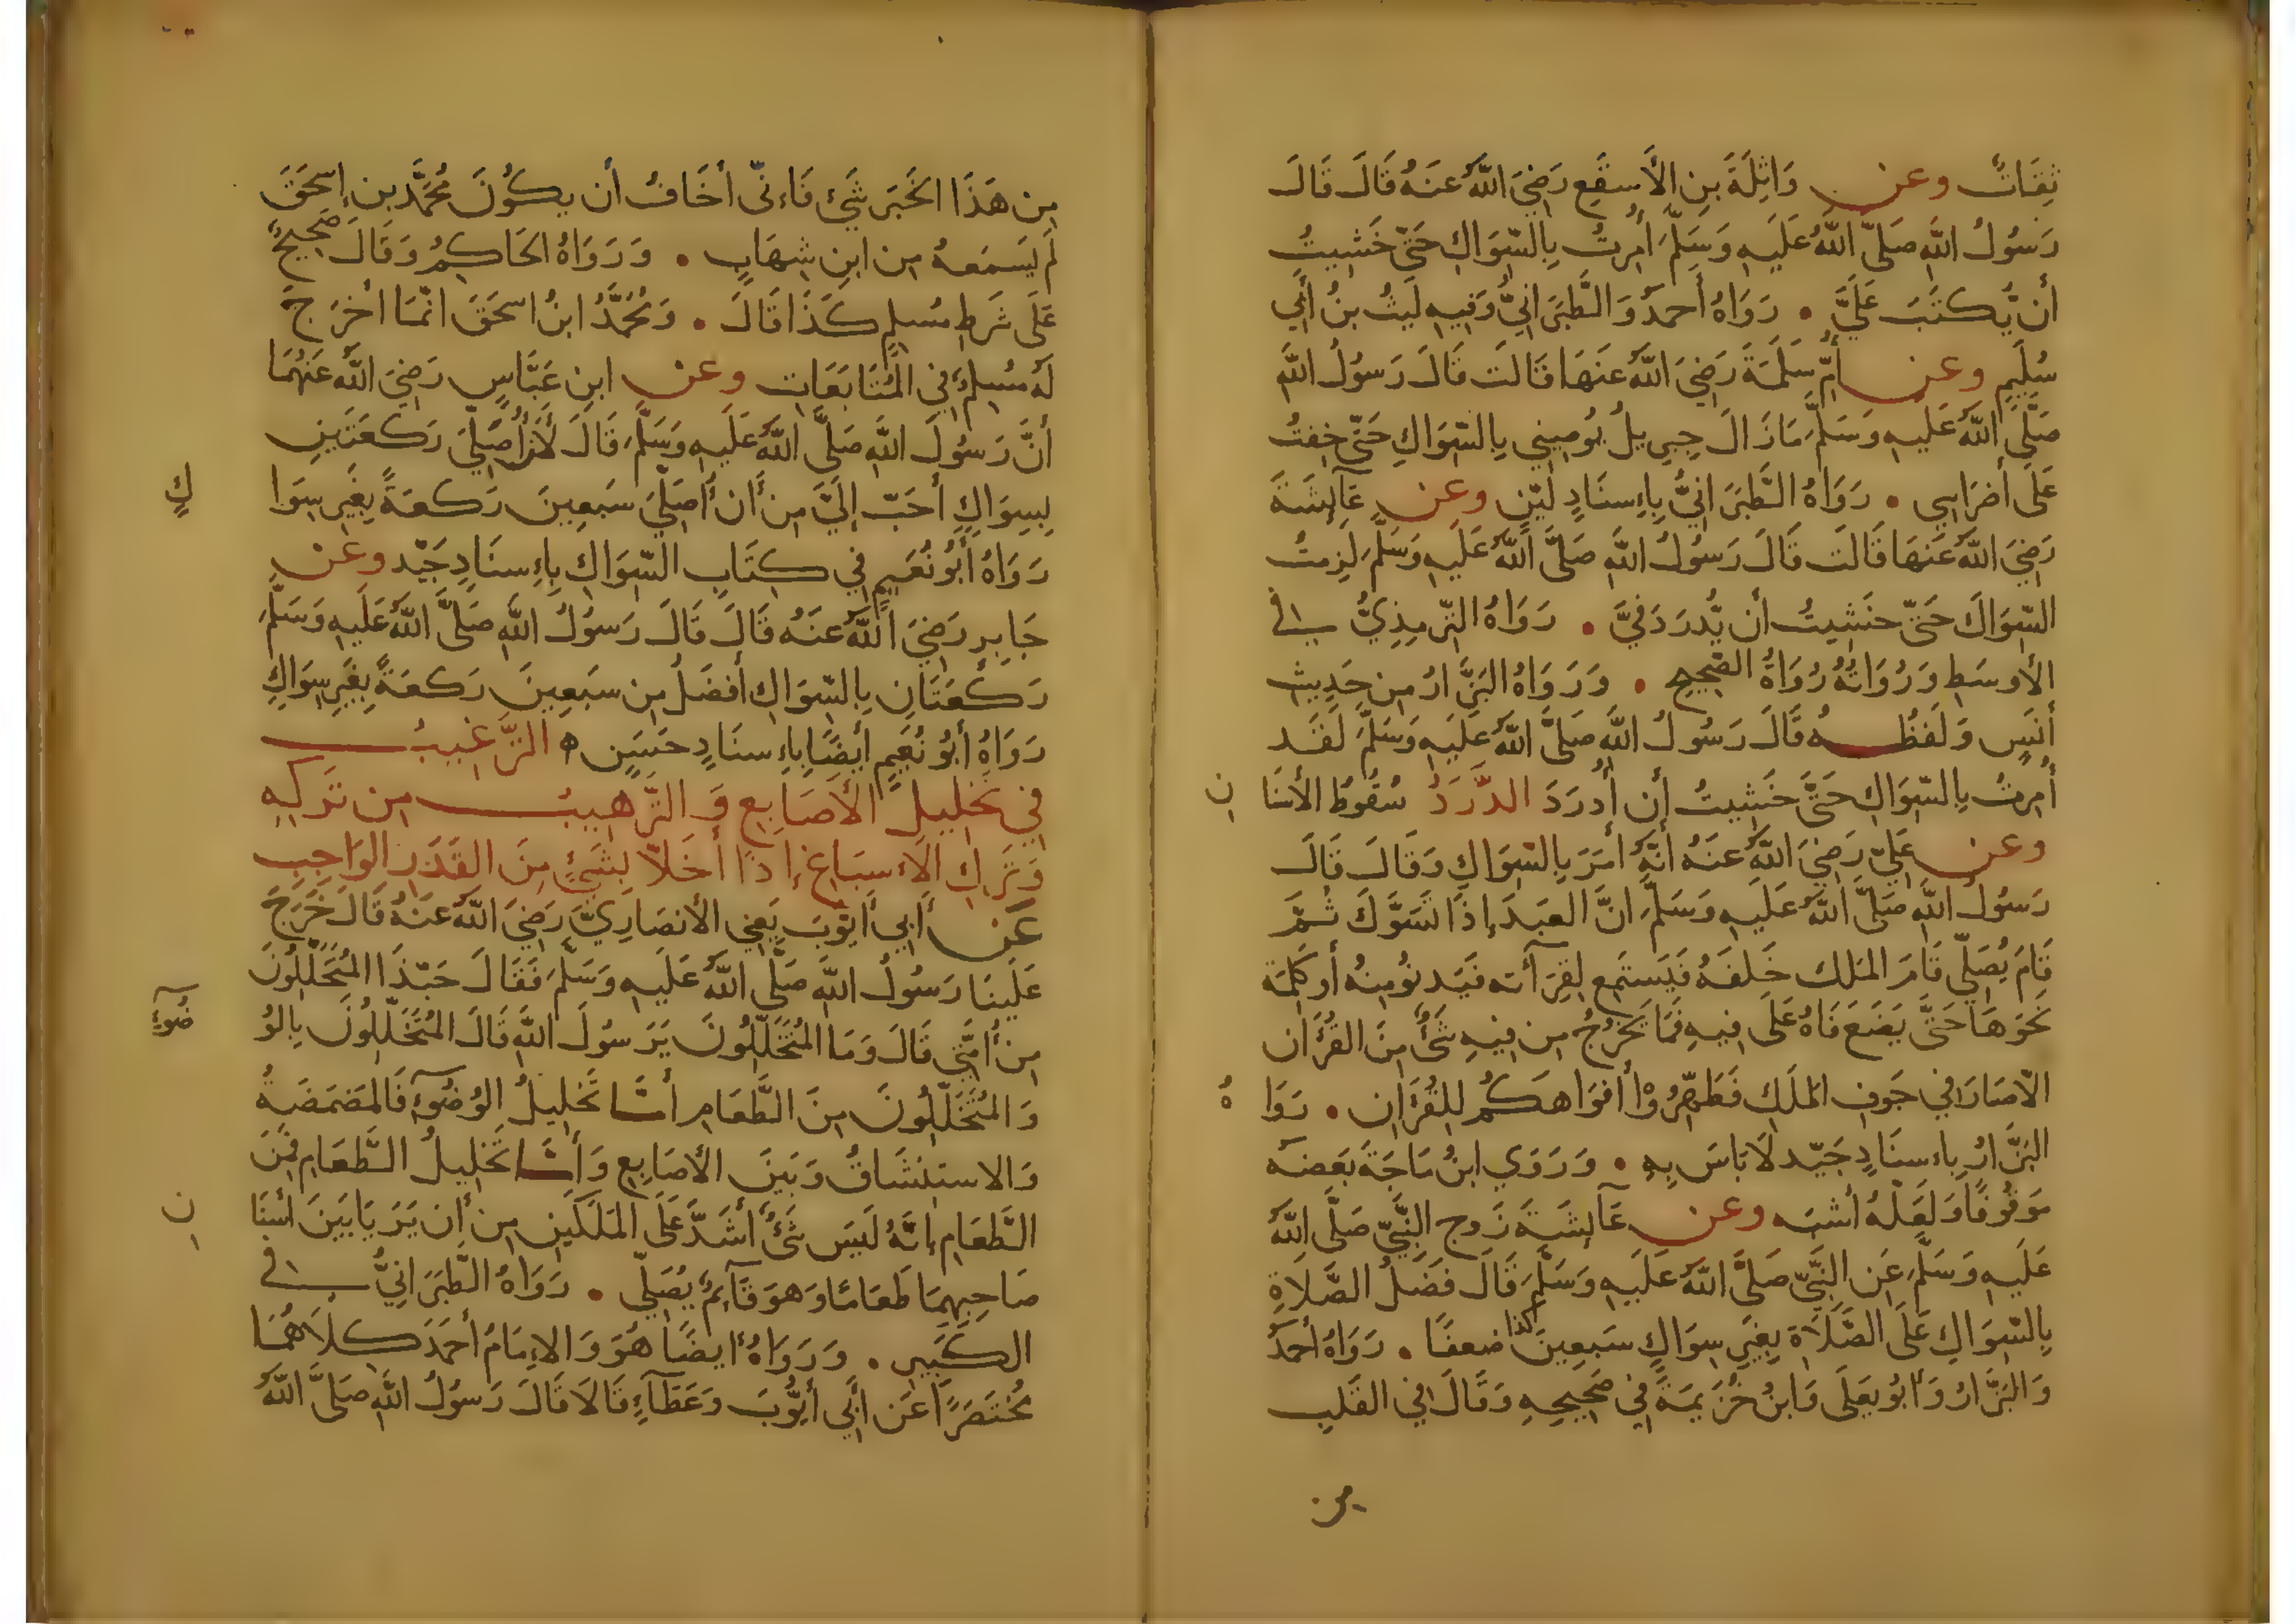 ثِقَاتٌ وعن وَاثِلَةَ بنِ الأَسقَعِ رَضِيَ اللّٰهُ عَنهُ قَالَ قَالَ
رَسُولُ اللّٰهِ صَلَّى اللّٰهُ عَلَيهِ وَسَلَّمَ أُمِرتُ بِالسِّوَاكِ حَتّى خَشِيتُ
أَن يُّكتَبَ عَلَيَّ . رَوَاهُ أَحمدُ وَالطَّبَرَانِيُّ وَفِيهِ لَيثُ بنُ أَبِي
سُلَيمٍ وعن أُمِّ سَلَمَةَ رَضِيَ اللّٰهُ عَنهَا قَالَت قَالَ رَسُولُ اللّٰهِ
صَلَّى اللّٰهُ عَلَيهِ وَسَلَّمَ مَازَالَ جِبرِيلُ يُوصِينِي بِالسِّوَاكِ حَتّى خِفتُ
عَلَى أَضرَاسِي . رَوَاهُ الطَّبَرَانِيُّ بِإِسنَادٍ لَيّنٍ وعن عَآئِشَةَ
رَضِيَ اللّٰهُ عَنهَا قَالَت قَالَ رَسُولُ اللّٰهِ صَلَّى اللّٰهُ عَلَيهِ وَسَلَّمَ لَزِمتُ
السِّوَاكَ حَتّى خَشِيتُ أَن يُّدرَدَ فِيَّ . رَوَاهُ التِّرمِذِيُّ فِي
الأَوسَطِ وَرُوَاتُهُ رُوَاةُ الصَّحِيحِ . وَرَوَاهُ البَزَّارُ مِن حَدِيثِ
أَنَسٍ وَلَفظُـــهُ قَالَ رَسُولُ اللّٰهِ صَلَّى اللّٰهُ عَلَيهِ وَسَلَّمَ لَقَد
أُمِرتُ بِالسِّوَاكِ حَتَّى خَشِيتُ أَن أُدرَدَ الدَّرَدُ سُقُوطُ الأَسنَانِ
وعن عَلِيّ رَضِيَ اللّٰهُ عَنهُ أَنَّهُ أَمَرَ بِالسِّوَاكِ وَقَالَ قَالَ
رَسُولُ اللّٰهِ صَلَّى اللّٰهُ عَلَيهِ وَسَلَّمَ اِنَّ العَبدَ إِذَا تَسَوَّكَ ثُمَّ
قَامَ يُصَلِّي قَامَ المَلك خَلفَهُ فَيَستَمِع لِقِرَآئَته فَيَدنُو مِنهُ أَو كَلِمَة
نَحوَهَا حَتَّى يَضَعَ فَاهُ عَلَى فِيهِ فَمَا يَخرُجُ مِن فِيهِ شَئٌ مِنَ القُرآن
الّاصَارَ فِي جَوفِ المَلَكِ فَطَهِّرُوا أَفوَاهَكُم لِلقُرآنِ . رَوَاهُ
البَزَّارُ بِإِسنَادٍ جَيّد لَا بَاسَ بِهِ . وَرَوَي ابنُ مَاجَةَ بَعضَه
مَوقُوفًا وَلَعَلَّهُ أَشبَه وعن عَآئِشَةَ زَوجِ النَّبِيِّ صَلَّى اللّٰهُ
عَلَيهِ وَسَلَّمَ عَنِ النَّبِيّ صَلَّى اللّٰهُ عَلَيهِ وَسَلَّمَ قَالَ فَضلُ الصَّلَاةِ
بِالسِّوَاكِ عَلَى الصَّلَاةِ بِغَيرِ سِوَاكٍ سَبعِينَ كذا ضعفًا . رَوَاهُ أَحمَدُ
وَالبَزَّارُ وَأَبُو يَعلَى وَابنُ خُزَيمَةَ فِي صَحِيحِهِ وَقَالَ فِي القَلبِ
من
مِن هَذَا الخَبَرِ شَئٌ فَاِنّى أَخَافُ أَن يكُونَ مُحَمَّد بن إِسحَقَ
لَم يَسمَعهُ مِن ابنِ شِهَابٍ . وَرَوَاهُ الحَاكِمُ وَقَالَ صَحِيحٌ
عَلَى شَرطِ مُسلِمٍ كَذَا قَالَ . وَمُحَمَّدُ ابنُ اسحَقَ انّمَا أَخرَجَ
لَهُ مُسلِمٌ فِي المُتَابَعَاتِ وعن ابنِ عَبَّاسٍ رَضِيَ اللّٰهُ عَنهُمَا
أَنَّ رَسُولَ اللّٰهِ صَلَّى اللّٰهُ عَلَيهِ وَسَلَّمَ قَالَ لَأَن أُصَلِّيَ رَكعَتَينِ
بِسِوَاكٍ أَحَبّ إِلَيَّ مِن أَن أُصَلِّيَ سَبعِينَ رَكعَةً بِغَيرِ سِوَاكٍ
رَوَاهُ أَبُو نُعَيمٍ فِي كِتَابِ السِّوَاكِ بِإِسنَادٍ جَيّد وعَن
جَابِرٍ رَضِيَ اللّٰهُ عَنهُ قَالَ قَالَ رَسُولُ اللّٰهِ صَلَّى اللّٰهُ عَلَيهِ وَسَلَّمَ
رَكعَتَانِ بِالسِّوَاكِ أَفضَلُ مِن سَبعِينَ رَكعَةً بِغَيرِ سِوَاكٍ
رَوَاهُ أَبُو نُعَيمٍ أَيضًا بِإِسنَادٍ حَسَنٍ ه التَّرغِيبُ
فِي تَخلِيلِ الأَصَابِعِ وَ التَّرهِيبُ مِن تَركِهِ
وَتَركِ الإِسبَاغِ إِذَا أَخَلَّا بِشَئٍ مِنَ القَدَرِ الوَاجِبِ
عَن أَبِي أَيُّوبَ يَعنِي الأَنصَارِيَّ رَضِيَ اللّٰهُ عَنهُ قَالَ خَرَجَ
عَلَينَا رَسُولُ اللّٰهِ صَلَّى اللّٰهُ عَلَيهِ وَسَلَّمَ فَقَالَ حَبّذَا المُتَخَلِّلُونَ
مِن أُمَّتِي قَالَ وَمَا المُتَخَلِّلُونَ يَرَسُولَ اللّٰهِ قَالَ المُتَخَلِّلُونَ بِالوُضُوءِ
وَالمُتَخَلِّلُونَ مِنَ الطَّعَامِ أَمَّا تَخلِيلُ الوُضُوءِ فَالمَضمَضَةُ
وَالاستِنشَاقُ وَبَينَ الأَصَابِعِ وَأَمَّا تَخلِيلُ الطَّعَامِ فَمِنَ
الطَّعَامِ إِنَّهُ لَيسَ شَئٌ أَشَدَّ عَلَى المَلَكَينِ مِن أَن يَرَيَا بَينَ أَسنَانِ
صَاحِبِهِمَا طَعَامًا وَهوَ قَآئِمٌ يُصَلِّي . رَوَاهُ الطَّبَرَانِيُّ فِي
الكَبِيرِ . وَرَوَاهُ أَيضًا هُوَ وَالإِمَامُ أَحمَدَ كِلَاهُمَا
مُختَصَرًا عَن أَبِي أَيُّوبَ وَعَطَآءٍ قَالَا قَالَ رَسُولُ اللّٰهِ صَلَّى اللّٰهُ